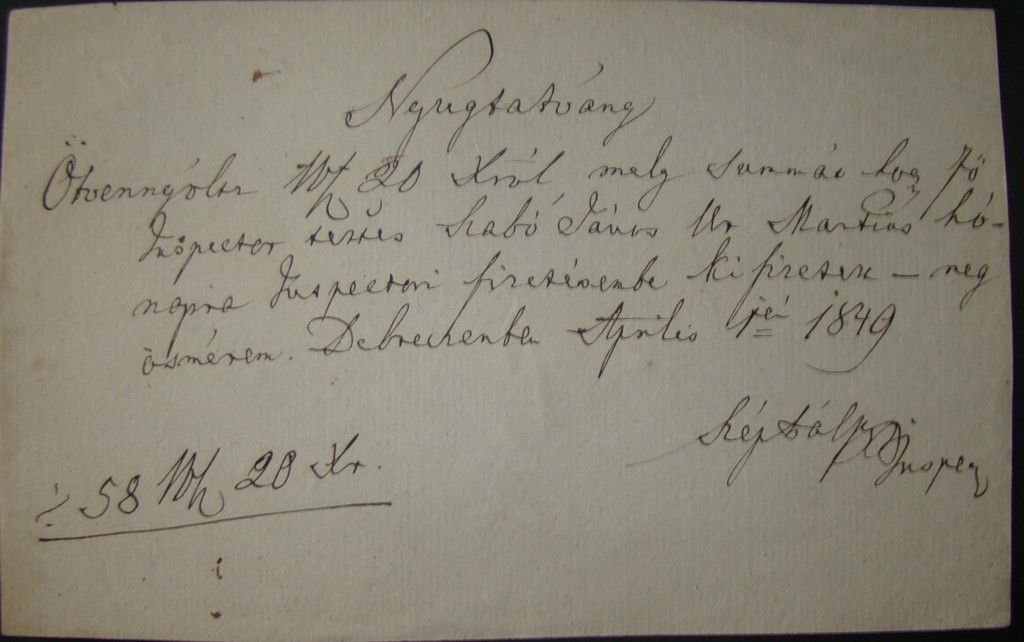 Nyugtatvány
Ötvennyolcz Wf 20 Xról, mely summát hogy Fő
Inspector tettes Szabó János Úr Martius hó-
napra Inspectori fizetésembe kifizetett – meg
ösmérem. Debreczenbe Aprilis 1jéi 1849
Inspec
58 Wf 20 Xr.